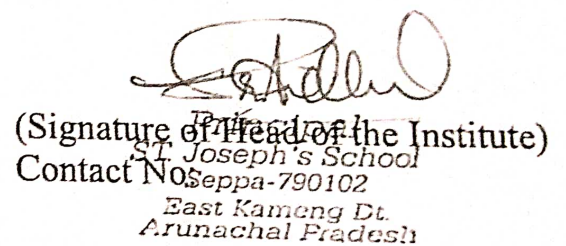 Principal
(Signature of Head of the Institute)
ST. Joseph's School
Contact No:
Seppa-790102
East Kameng Dt.
Arunachal Pradesh